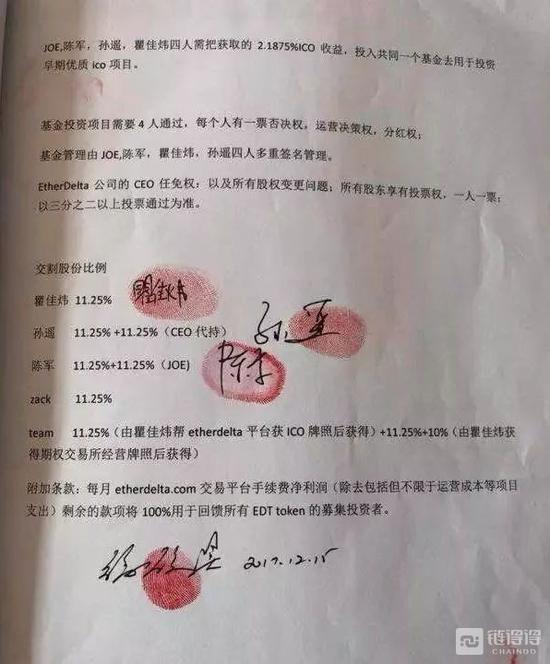 JOE,陈军，孙遥，瞿佳炜四人需把获取的 2.1875%ICO 收益，投入共同一个基金去用于投资
早期优质 ico 项目。
基金投资项目需要 4 人通过，每个人有一票否决权，运营决策权，分红权；
基金管理由 JOE,陈军，瞿佳炜，孙遥四人多重签名管理。
EtherDelta 公司的 CEO 任免权：以及所有股权变更问题；所有股东享有投票权，一人一票；
以三分之二以上投票通过为准。
交割股份比例
瞿佳炜 11.25% 瞿佳炜
孙遥 11.25% +11.25%（CEO 代持） 孙遥
陈军 11.25%+11.25%（JOE) 陈军
zack 11.25%
team 11.25%（由瞿佳炜帮 etherdelta 平台获 ICO 牌照后获得）+11.25%+10%（由瞿佳炜获
得期权交易所经营牌照后获得）
附加条款：每月 etherdelta.com 交易平台手续费净利润（除去包括但不限于运营成本等项目
支出）剩余的款项将 100%用于回馈所有 EDT token 的募集投资者。
2017.12.15
链得得
CHAINDD